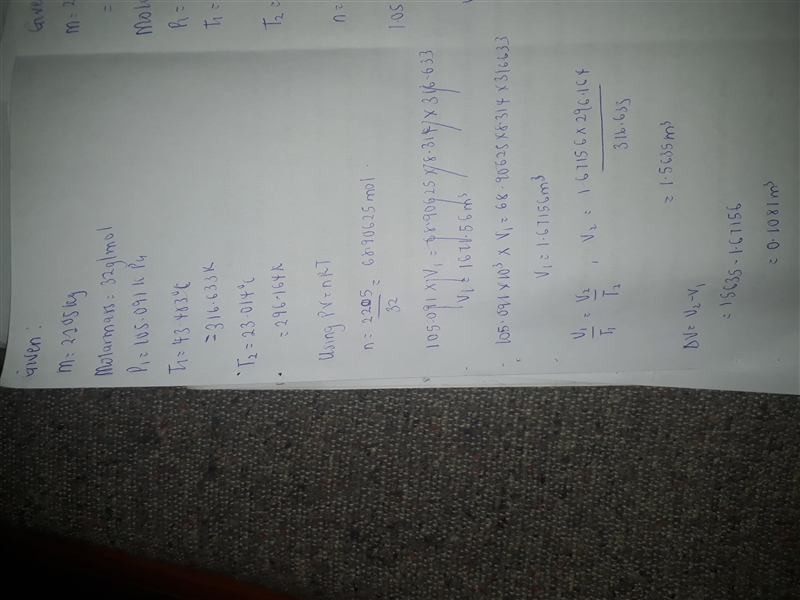 Given:
m = 2205kg
Molarmass = 32g/mol
P1 = 105.091 k Pa
T1 = 43.483°C
= 316.633K
T2 = 23.014°C
= 296.164K
Using PV=nRT
n = 2205/32 = 68.90625mol.
105.091 x V1 = 68.90625 x 8.314 x 316.633
V1 = 1671.56m³
105.091 x10³ x V1 = 68.90625 x 8.314 x 316633
V1 = 1.67156m³
V1/T1 = V2/T2 , V2 = 1.67156 x 296.164/316.633
= 1.5635m³
ΔV = V2-V1
= 1.5635-1.67156
= 0.1081m³
Give
m = 2
=
Mola
P1 =
T1 =
T2 =
n =
105